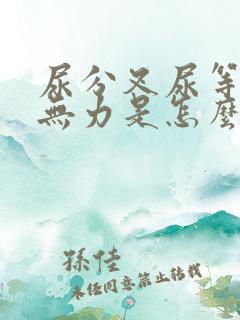 尿分叉尿等
無力是怎麼
孫佳
未经同意禁止转载